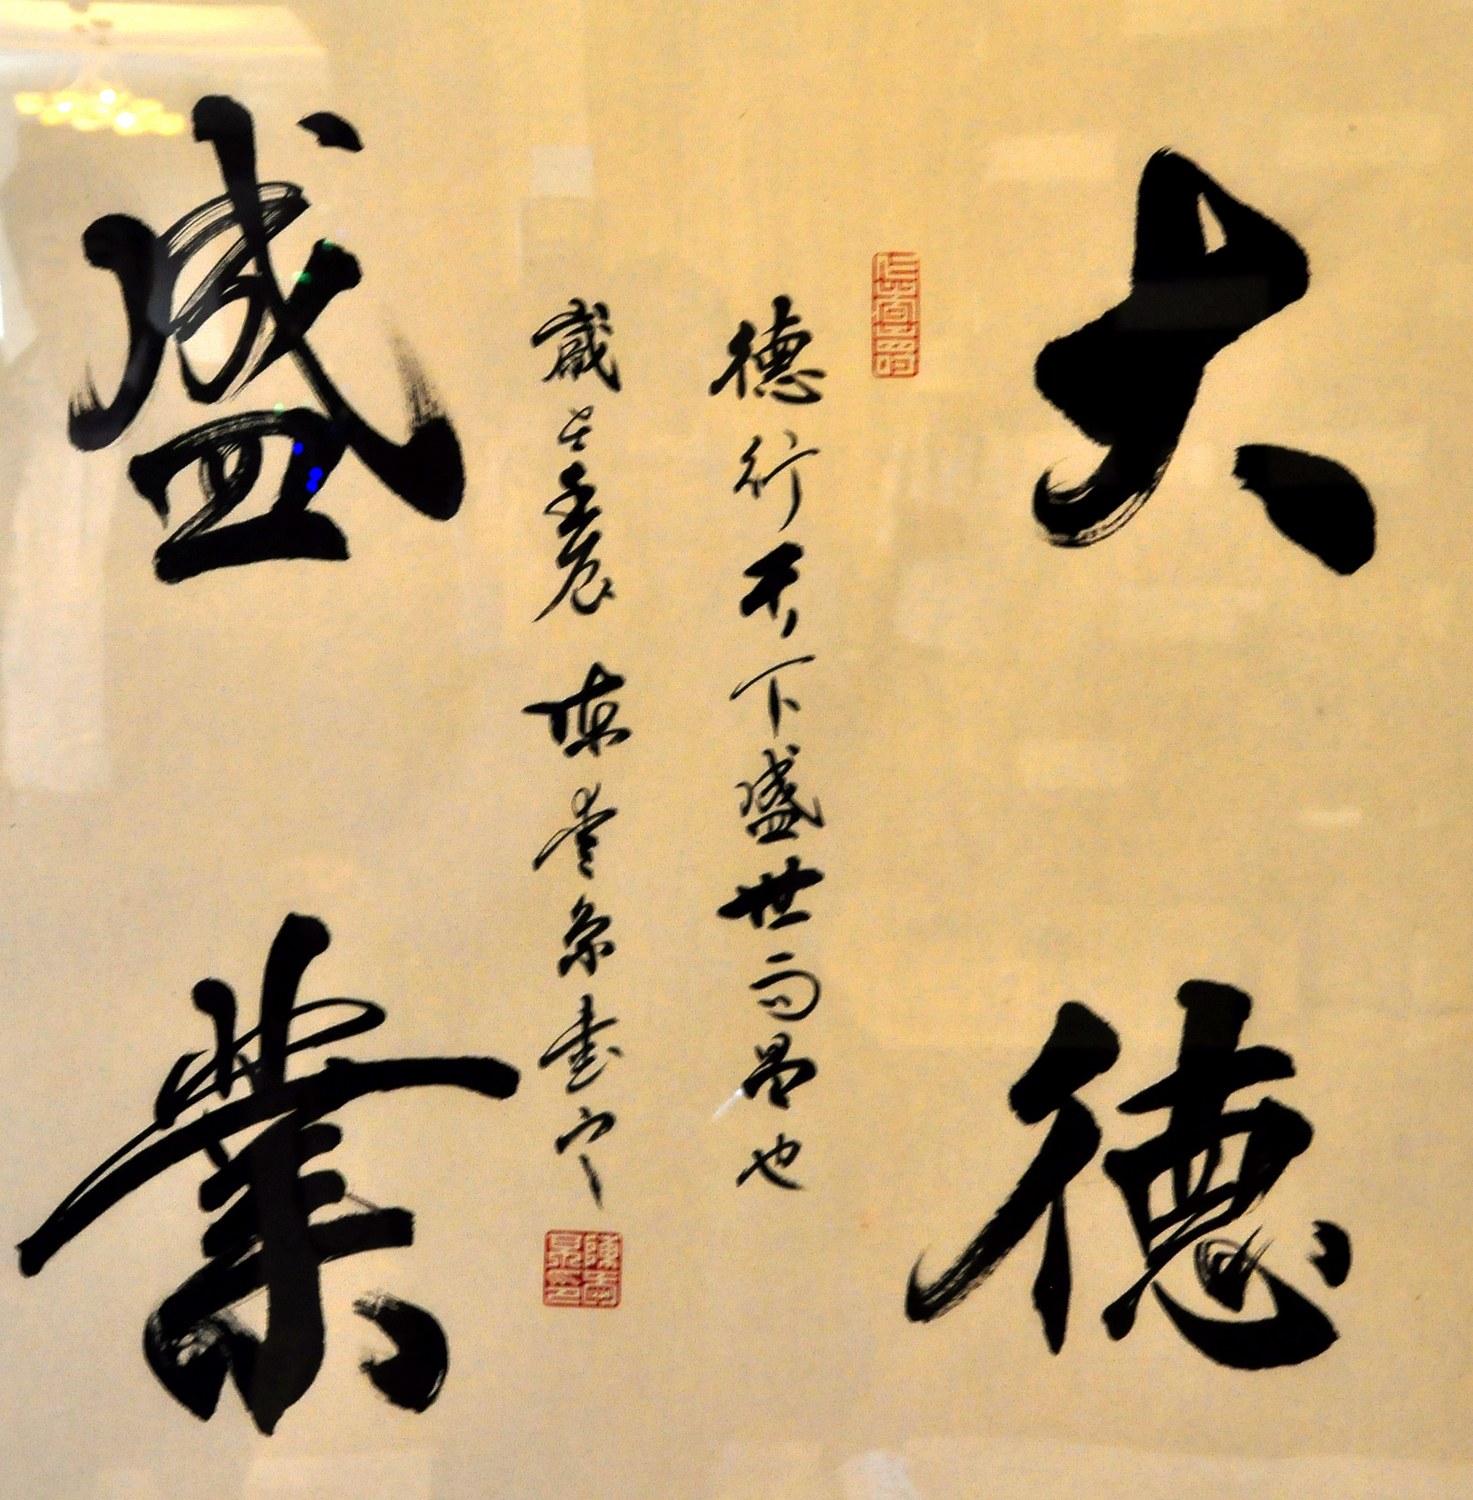 大德
德行天下盛世而昌也
歲在壬辰 陳 書
盛業